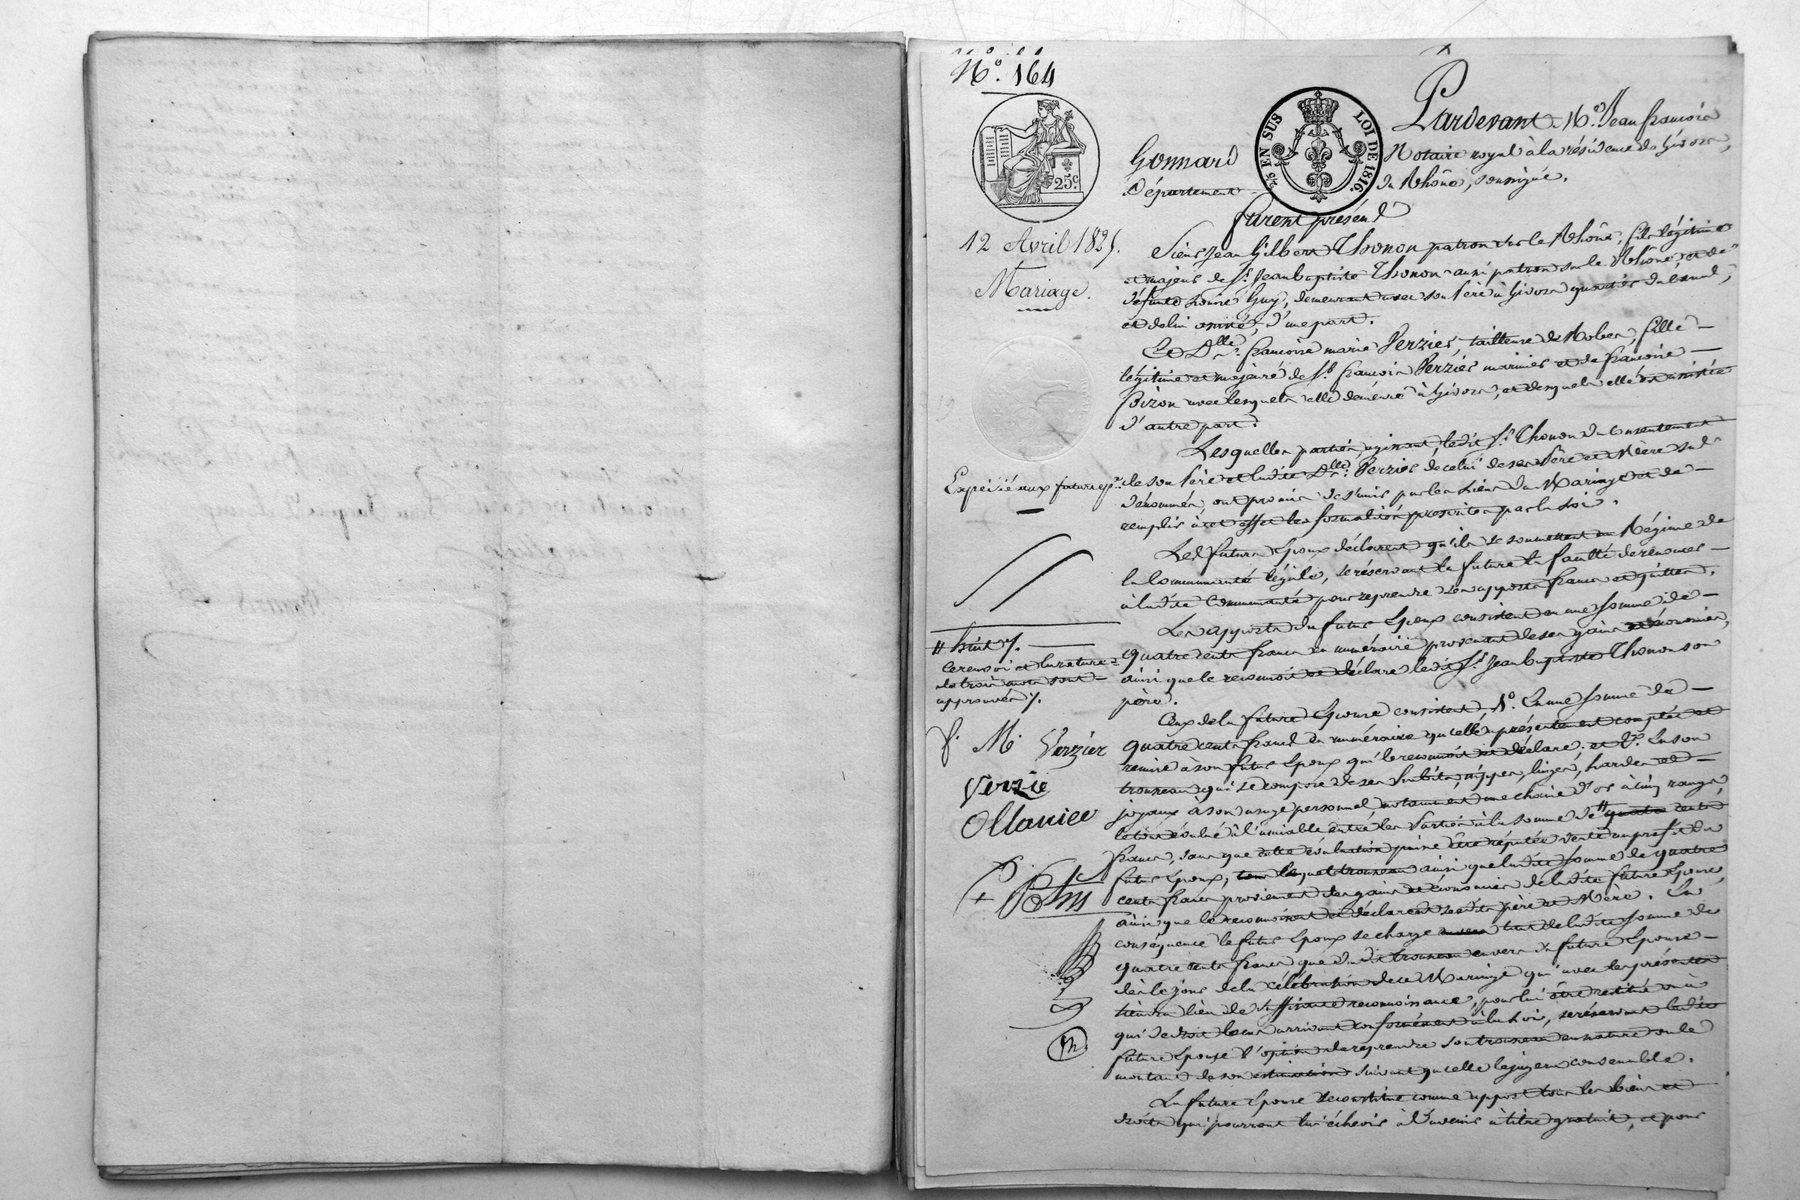 N.º 164
Pardevant M.e Jean françois
Gonnard Notaire royal à la résidence de Givors,
Département du Rhône, soussigné.
25 EN SUS LOI DE 1816.
25c.
furent présens
12 Avril 1825.
Mariage.
Sieur Jean Gilbert Thonon patron sur le Rhône, fils légitime
et majeur de S.r Jean baptiste Thonon aussi patron sur le Rhône et de
défunte Guy, demeurant avec son père à Givors
et de lui d'une part.
Et D.lle françoise marie Verzier, tailleuse de Robes, fille
légitime et majeure de S.r françois Verzier marinier et de françoise
avec lesquels elle demeure à Givors, et desquels elle est assistée
d'autre part.
Lesquelles parties, ledit S.r Thonon du consentement
de son Père et ladite D.lle Verzier de celui de ses Père et Mère sus
dénommés, ont promis de s'unir par les liens du Mariage et de
remplir à cet effet les formalités prescrites par la Loi.
Expédié aux futurs ep.x
Les futurs Epoux déclarent qu'ils se soumettent au Régime de
la Communauté légale, se réservant la future la faculté de renoncer
à ladite Communauté pour reprendre ses apports francs et quittes.
Les apports du futur Epoux consistent en une somme de
quatre cents francs en numéraire provenant de ses gains et économies,
ainsi que le reconnoit et déclare ledit S.r Jean baptiste Thonon son
père.
Ceux de la future Epouse consistent 1.º En une somme de
quatre cents francs en numéraire qu'elle a présentement comptée et
remise à son futur Epoux qui le reconnoit et déclare; et 2.º En son
trousseau qui se compose de ses habits, nippes, linges, hardes et
joyaux à son usage personnel, notamment une chaine d'or à cinq rangs,
le tout évalué à l'amiable entre les Parties à la somme de quatre cents
francs, sans que cette évaluation puisse être réputée vente au profit du
futur Epoux, lequel trousseau ainsi que ladite somme de quatre
cents francs proviennent des gains et économies de ladite future Epouse,
ainsi que le reconnoissent et déclarent sesdits père et Mère. En
conséquence le futur Epoux se charge tant de ladite somme de
quatre cents francs que dudit trousseau envers sa future Epouse
dès le jour de la célébration de ce Mariage qui avec les présentes
tiendra lieu de suffisante reconnoissance, pour lui être restitué ou à
qui de droit le cas arrivant conformément à la Loi, se réservant ladite
future Epouse l'option de reprendre son trousseau en nature ou le
montant de son estimation suivant qu'elle le jugera convenable.
La future Epouse se constitue comme apport tous les biens et
droits qui pourront lui échoir à l'avenir à titre gratuit, et pour
huit
ce renvoi et la rature
de trois mots sont
approuvés
f. M. Verzier
Verzie
Ollanier